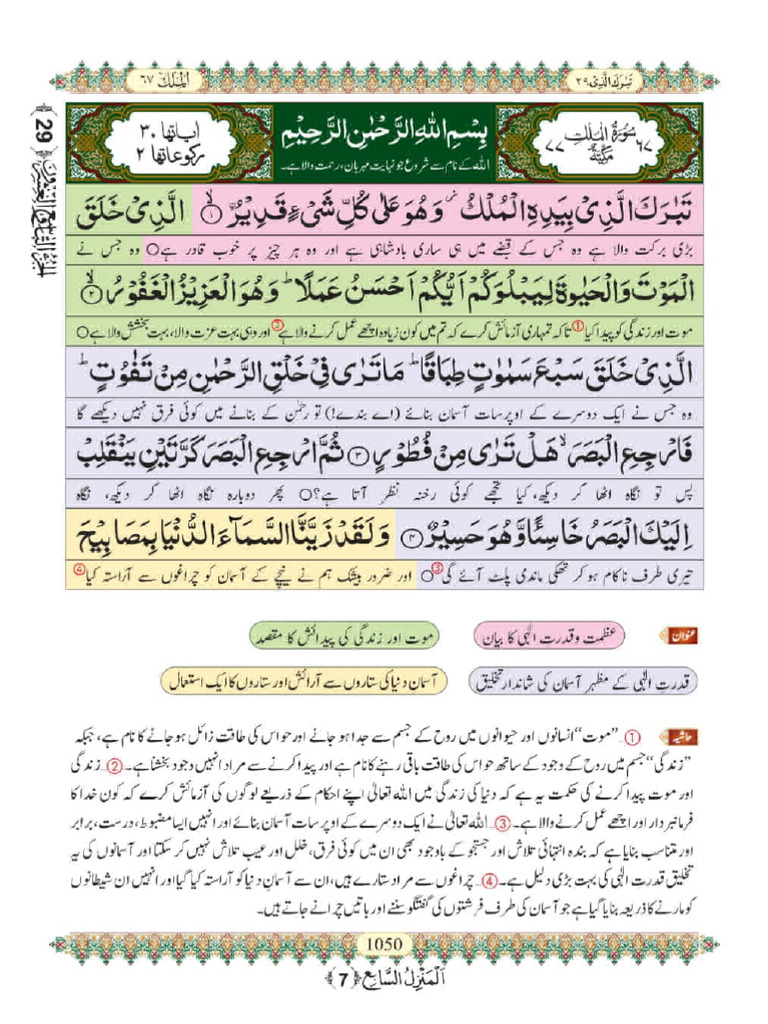 تَبٰرَكَ الَّذِیۡ ٢٩
اَلْمُلْك ٦٧
سُوْرَةُ الْمُلْكِ
٦٧ مَکِّیَّۃٌ ٧٧
بِسْمِ اللهِ الرَّحْمٰنِ الرَّحِیْمِ
اللہ کے نام سے شروع جو نہایت مہربان، رحمت والا ہے۔
اٰیاتها ٣٠
رکوعاتها ٢
29
تَبٰرَكَ الَّذِیْ بِیَدِهِ الْمُلْكُ ۫ وَ هُوَ عَلٰى كُلِّ شَیْءٍ قَدِیْرُ ۙ﴿١﴾ الَّذِیْ خَلَقَ
بڑی برکت والا ہے وہ جس کے قبضے میں ہی ساری بادشاہی ہے اور وہ ہر چیز پر خوب قادر ہے ○ وہ جس نے
الْمَوْتَ وَ الْحَیٰوةَ لِیَبْلُوَكُمْ اَیُّكُمْ اَحْسَنُ عَمَلًا ؕ وَ هُوَ الْعَزِیْزُ الْغَفُوْرُ ۙ﴿٢﴾
موت اور زندگی کو پیدا کیا ① تاکہ تمہاری آزمائش کرے کہ تم میں کون زیادہ اچھے عمل کرنے والا ہے ② اور وہی بہت عزت والا، بہت بخشش والا ہے ○
الَّذِیْ خَلَقَ سَبْعَ سَمٰوٰتٍ طِبَاقًا ؕ مَا تَرٰى فِیْ خَلْقِ الرَّحْمٰنِ مِنْ تَفٰوُتٍ ؕ
وہ جس نے ایک دوسرے کے اوپر سات آسمان بنائے (اے بندے!) تو رحمٰن کے بنانے میں کوئی فرق نہیں دیکھے گا
فَارْجِعِ الْبَصَرَ ۙ هَلْ تَرٰى مِنْ فُطُوْرٍ ﴿٣﴾ ثُمَّ ارْجِعِ الْبَصَرَ كَرَّتَیْنِ یَنْقَلِبْ
پس تو نگاہ اٹھا کر دیکھ، کیا تجھے کوئی رخنہ نظر آتا ہے؟ ○ پھر دوبارہ نگاہ اٹھا کر دیکھ، نگاہ
اِلَیْكَ الْبَصَرُ خَاسِئًا وَّ هُوَ حَسِیْرٌ ﴿٤﴾ وَ لَقَدْ زَیَّنَّا السَّمَآءَ الدُّنْیَا بِمَصَابِیْحَ
تیری طرف ناکام ہو کر تھکی ماندی پلٹ آئے گی ③ ○ اور ضرور بیشک ہم نے نیچے کے آسمان کو چراغوں سے آراستہ کیا ④
عنوان
عظمت و قدرتِ الٰہی کا بیان
موت اور زندگی کی پیدائش کا مقصد
قدرتِ الٰہی کے مظہر آسمان کی شاندار تخلیق
آسمانِ دنیا کی ستاروں سے آرائش اور ستاروں کا ایک استعمال
حاشیہ
①... ”موت“ انسانوں اور حیوانوں میں روح کے جسم سے جدا ہو جانے اور حواس کی طاقت زائل ہو جانے کا نام ہے، جبکہ
”زندگی“ جسم میں روح کے وجود کے ساتھ حواس کی طاقت باقی رہنے کا نام ہے اور پیدا کرنے سے مراد انہیں وجود بخشنا ہے۔ ②... زندگی
اور موت پیدا کرنے کی حکمت یہ ہے کہ دنیا کی زندگی میں اللہ تعالیٰ اپنے احکام کے ذریعے لوگوں کی آزمائش کرے کہ کون خدا کا
فرمانبردار اور اچھے عمل کرنے والا ہے۔ ③... اللہ تعالیٰ نے ایک دوسرے کے اوپر سات آسمان بنائے اور انہیں ایسا مضبوط، درست، برابر
اور متناسب بنایا ہے کہ بندہ انتہائی تلاش اور جستجو کے باوجود بھی ان میں کوئی فرق، خلل اور عیب تلاش نہیں کر سکتا اور آسمانوں کی یہ
تخلیق قدرتِ الٰہی کی بہت بڑی دلیل ہے۔ ④... چراغوں سے مراد ستارے ہیں، ان سے آسمانِ دنیا کو آراستہ کیا گیا اور انہیں ان شیطانوں
کو مارنے کا ذریعہ بنایا گیا ہے جو آسمان کی طرف فرشتوں کی گفتگو سننے اور باتیں چرانے جاتے ہیں۔
1050
اَلْمَنْزِلُ السَّابِع ﴿7﴾